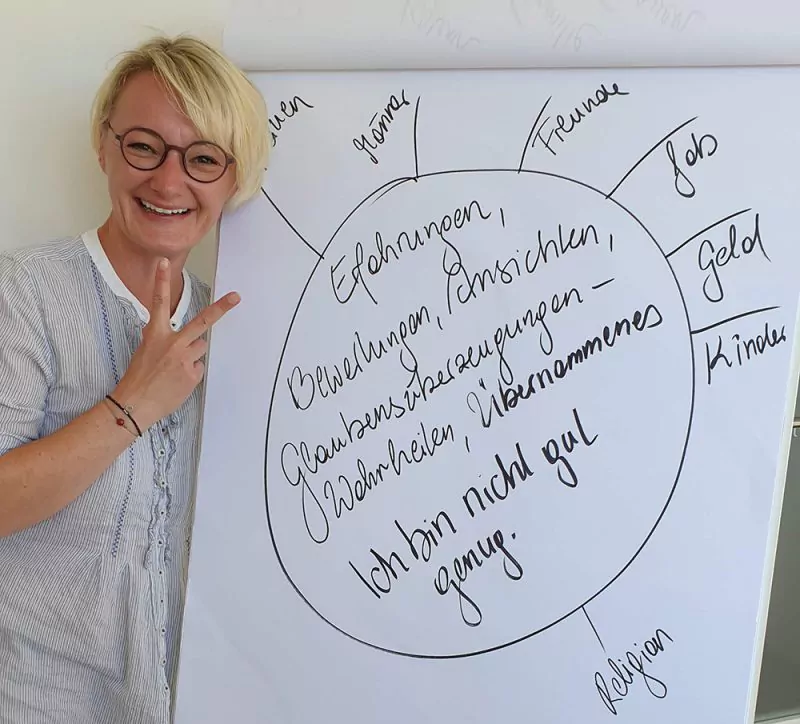 Männer
Freunde
Job
Geld
Kinder
Erfahrungen,
Bewertungen, Ansichten,
Glaubensüberzeugungen –
Wahrheiten, Übernommenes
Ich bin nicht gut
genug.
Religion